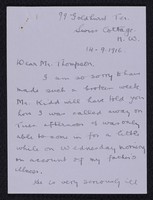 Swiss Cottage.
N.W.
14-9-1916
Dear Mr. Thompson,
I am so sorry I have
made such a broken week
Mr. Kidd will have told you
how I was called away on
Tues afternoon & was only
able to come in for a little
while on Wednesday morning
on account of my father's
illness.
He is very seriously ill